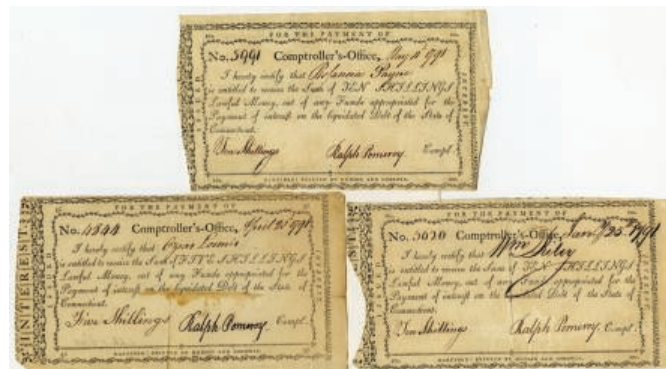 FOR THE PAYMENT OF
No. 5991 Comptroller's-Office, May 1791
I hereby certify that Payne
is entitled to receive the Sum of TEN SHILLINGS
Lawful Money, out of any Funds appropriated for the
Payment of interest on the liquidated Debt of the State of
Connecticut.
Ten Shillings Ralph Pomeroy Compt.
HARTFORD: PRINTED BY HUDSON AND GOODWIN.
INTEREST
FOR THE PAYMENT OF
No. 4844 Comptroller's-Office, April 1791
I hereby certify that Loomis
is entitled to receive the Sum of FIVE SHILLINGS
Lawful Money, out of any Funds appropriated for the
Payment of interest on the liquidated Debt of the State of
Connecticut.
Five Shillings Ralph Pomeroy Compt.
HARTFORD: PRINTED BY HUDSON AND GOODWIN.
FOR THE PAYMENT OF
No. Comptroller's-Office, 25 1791
I hereby certify that Wm
is entitled to receive the Sum of TEN SHILLINGS
Lawful Money, out of any Funds appropriated for the
Payment of interest on the liquidated Debt of the State of
Connecticut.
Ten Shillings Ralph Pomeroy Compt.
HARTFORD: PRINTED BY HUDSON AND GOODWIN.